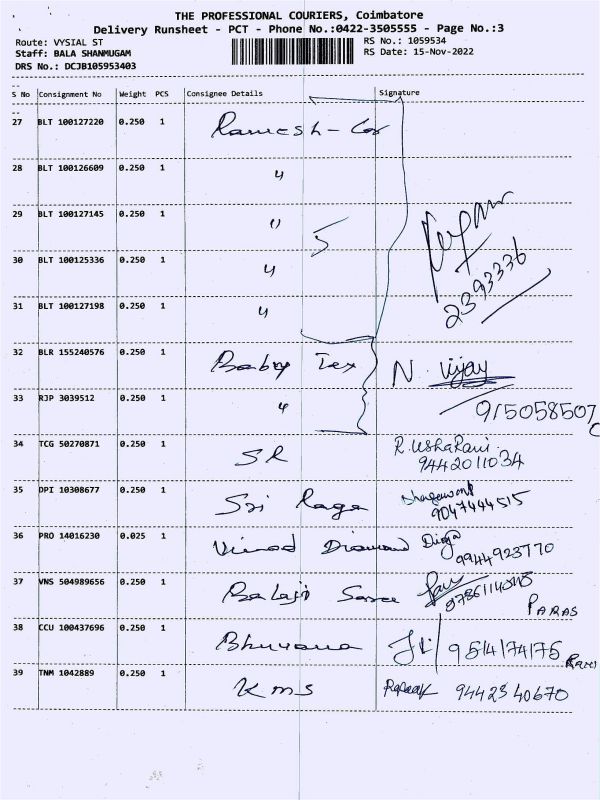 THE PROFESSIONAL COURIERS, Coimbatore
Delivery Runsheet - PCT - Phone No.:0422-3505555 - Page No.:3
Route: VYSIAL ST RS No.: 1059534
Staff: BALA SHANMUGAM RS Date: 15-Nov-2022
DRS No.: DCJB105953403
S No Consignment No Weight PCS Consignee Details Signature
27 BLT 100127220 0.250 1 Ramesh - Cor
28 BLT 100126609 0.250 1 "
29 BLT 100127145 0.250 1 " 5
30 BLT 100125336 0.250 1 " 2393336
31 BLT 100127198 0.250 1 "
32 BLR 155240576 0.250 1 Baby Tex N. Vijay
33 RJP 3039512 0.250 1 " 915058507
34 TCG 50270871 0.250 1 SR R. Usha Rani
9442011034
35 DPI 10308677 0.250 1 Sri Raga
9047444515
36 PRO 14016230 0.025 1 Vinod Diamond Divya
9944923770
37 VNS 504989656 0.250 1 Balaji Saree
PARAS
38 CCU 100437696 0.250 1 Bhuvana 9514174175 Rani
39 TNM 1042889 0.250 1 KMS 9442340670